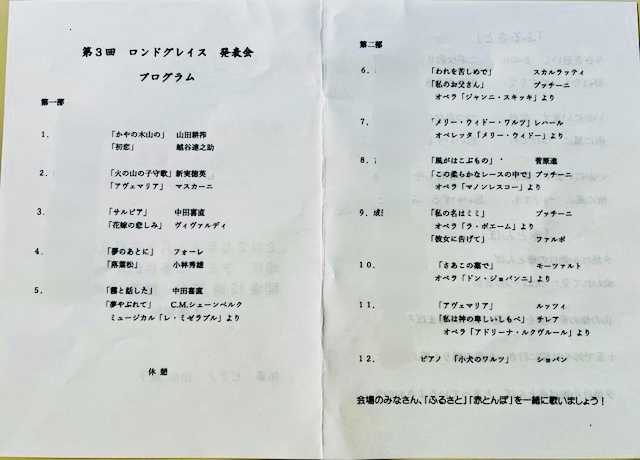 第3回 ロンドグレイス 発表会
プログラム
第一部
1. 「かやの木山の」 山田耕筰
「初恋」 越谷達之助
2. 「火の山の子守歌」 新実徳英
「アヴェマリア」 マスカーニ
3. 「サルビア」 中田喜直
「花嫁の悲しみ」 ヴィヴァルディ
4. 「夢のあとに」 フォーレ
「落葉松」 小林秀雄
5. 「霧と話した」 中田喜直
「夢やぶれて」 C.M.シェーンベルク
ミュージカル「レ・ミゼラブル」より
休憩
第二部
6. 「われを苦しめで」 スカルラッティ
「私のお父さん」 プッチーニ
オペラ「ジャンニ・スキッキ」より
7. 「メリー・ウィドー・ワルツ」レハール
オペレッタ「メリー・ウィドー」より
8. 「風がはこぶもの」 菅原進
「この柔らかなレースの中で」プッチーニ
オペラ「マノンレスコー」より
9. 「私の名はミミ」 プッチーニ
オペラ「ラ・ボエーム」より
「彼女に告げて」 ファルボ
10. 「さあこの薬で」 モーツァルト
オペラ「ドン・ジョバンニ」より
11. 「アヴェマリア」 ルッツィ
「私は神の卑しいしもべ」 チレア
オペラ「アドリーナ・ルクヴルール」より
12. ピアノ 「小犬のワルツ」 ショパン
会場のみなさん、「ふるさと」「赤とんぼ」を一緒に歌いましょう！